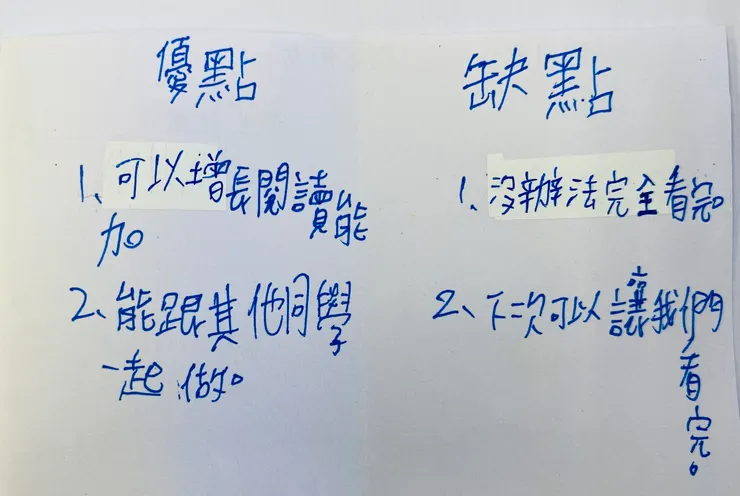 優點
1、可以增長閱讀能
加。
2、能跟其他同學
一起做。
缺點
1、沒辦法完全看完。
2、下次可以讓我們
看完。